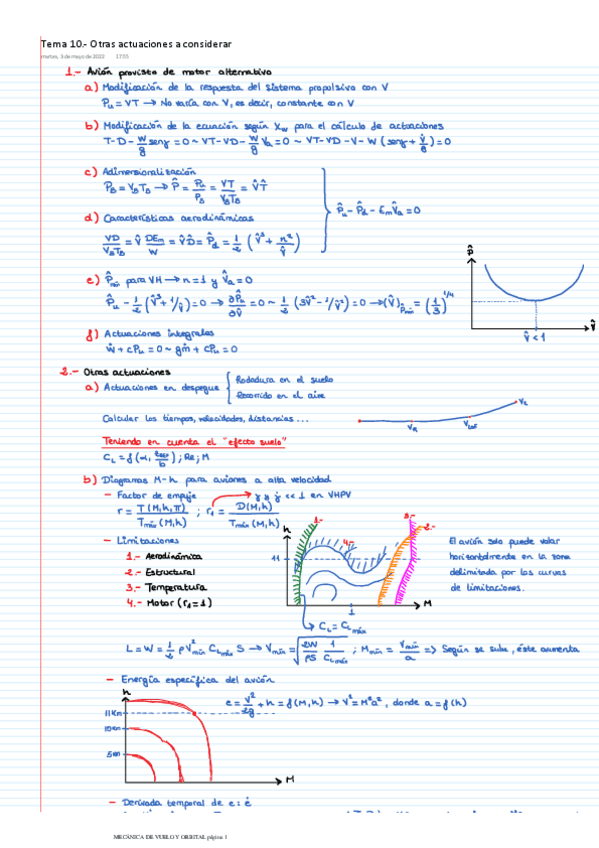 Tema 10.- Otras actuaciones a considerar
martes, 3 de mayo de 2022 17:55
1.- Avión provisto de motor alternativo
a) Modificación de la respuesta del sistema propulsivo con V
Pu = VT → No varía con V, es decir, constante con V
b) Modificación de la ecuación según Xw para el cálculo de actuaciones
T-D-W/g senγ = 0 ~ VT-VD-W/g V̂a = 0 ~ VT-VD-V-W (senγ + V̇/g) = 0
c) Adimensionalización
PB = VB TB → P̂ = Pu/PB = VT/VBTB = V̂T̂
P̂u - P̂d - Em V̂a = 0
d) Características aerodinámicas
VD/VBTB = V̂ DEm/W = V̂D̂ = P̂d = 1/2 (V̂³ + n²/V̂)
e) P̂mín para VH → n = 1 y V̂a = 0
P̂u - 1/2 (V̂³ + 1/V̂) = 0 → ∂P̂u/∂V̂ = 0 ~ 1/2 (3V̂² - 1/V̂²) = 0 → (V̂)P̂mín = (1/3)^1/4
P̂
V̂
V̂ < 1
f) Actuaciones integrales
Ẇ + cPu = 0 ~ gṁ + cPu = 0
2.- Otras actuaciones
a) Actuaciones en despegue
Rodadura en el suelo
Recorrido en el aire
Calcular los tiempos, velocidades, distancias...
VR
VLOF
V2
Teniendo en cuenta el "efecto suelo"
b) Diagramas M-h para aviones a alta velocidad
- Factor de empuje
γ y γ̇ << 1 en VHPV
r = T(M,h,π)/Tmáx(M,h) ; r1 = D(M,h)/Tmáx(M,h)
- Limitaciones
1.- Aerodinámica
2.- Estructural
3.- Temperatura
4.- Motor (r1=1)
h
1.-
4.-
3.-
2.-
11
1
M
El avión solo puede volar
horizontalmente en la zona
delimitada por las curvas
de limitaciones.
CL = CLmáx
L = W = 1/2 ρV²mín CLmáx S → Vmín = √(2W/ρS 1/CLmáx) ; Mmín = Vmín/a => Según se sube, éste aumenta
- Energía específica del avión
e = V²/2g + h = f(M,h) → V² = M²a², donde a = f(h)
h
11km
10km
5km
M
- Derivada temporal de e: ė
MECÁNICA DE VUELO Y ORBITAL página 1